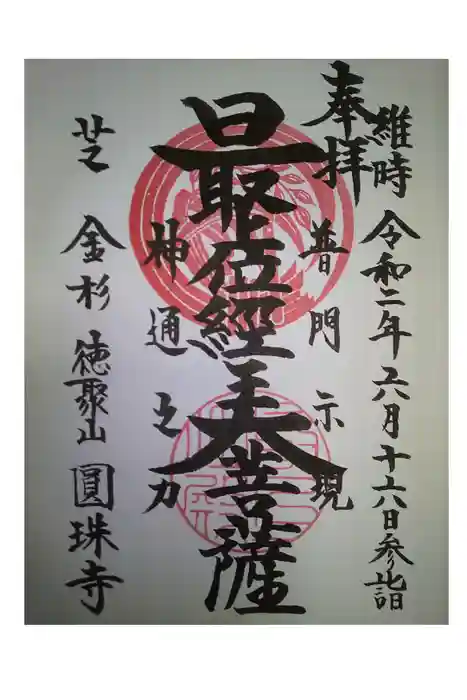 奉拝
維時 令和二年 六月十六日参詣
普門示現
最上位經王大菩薩
神通之力
芝 金杉 徳聚山 圓珠寺